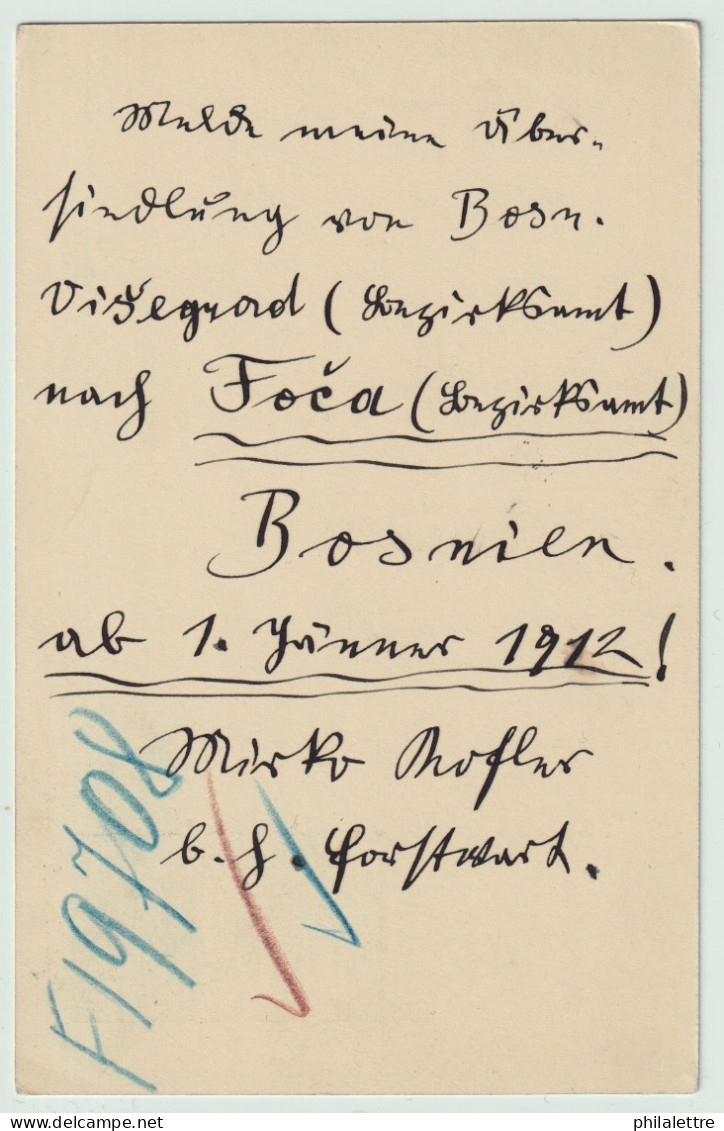 Melde meine Über-
siedlung von Bosn.
Višegrad (Bezirksamt)
nach Foča (Bezirksamt)
Bosnien.
ab 1. Jänner 1912!
Mirko Kofler
b. h. Forstwart.
F19708
delcampe.net
philalettre